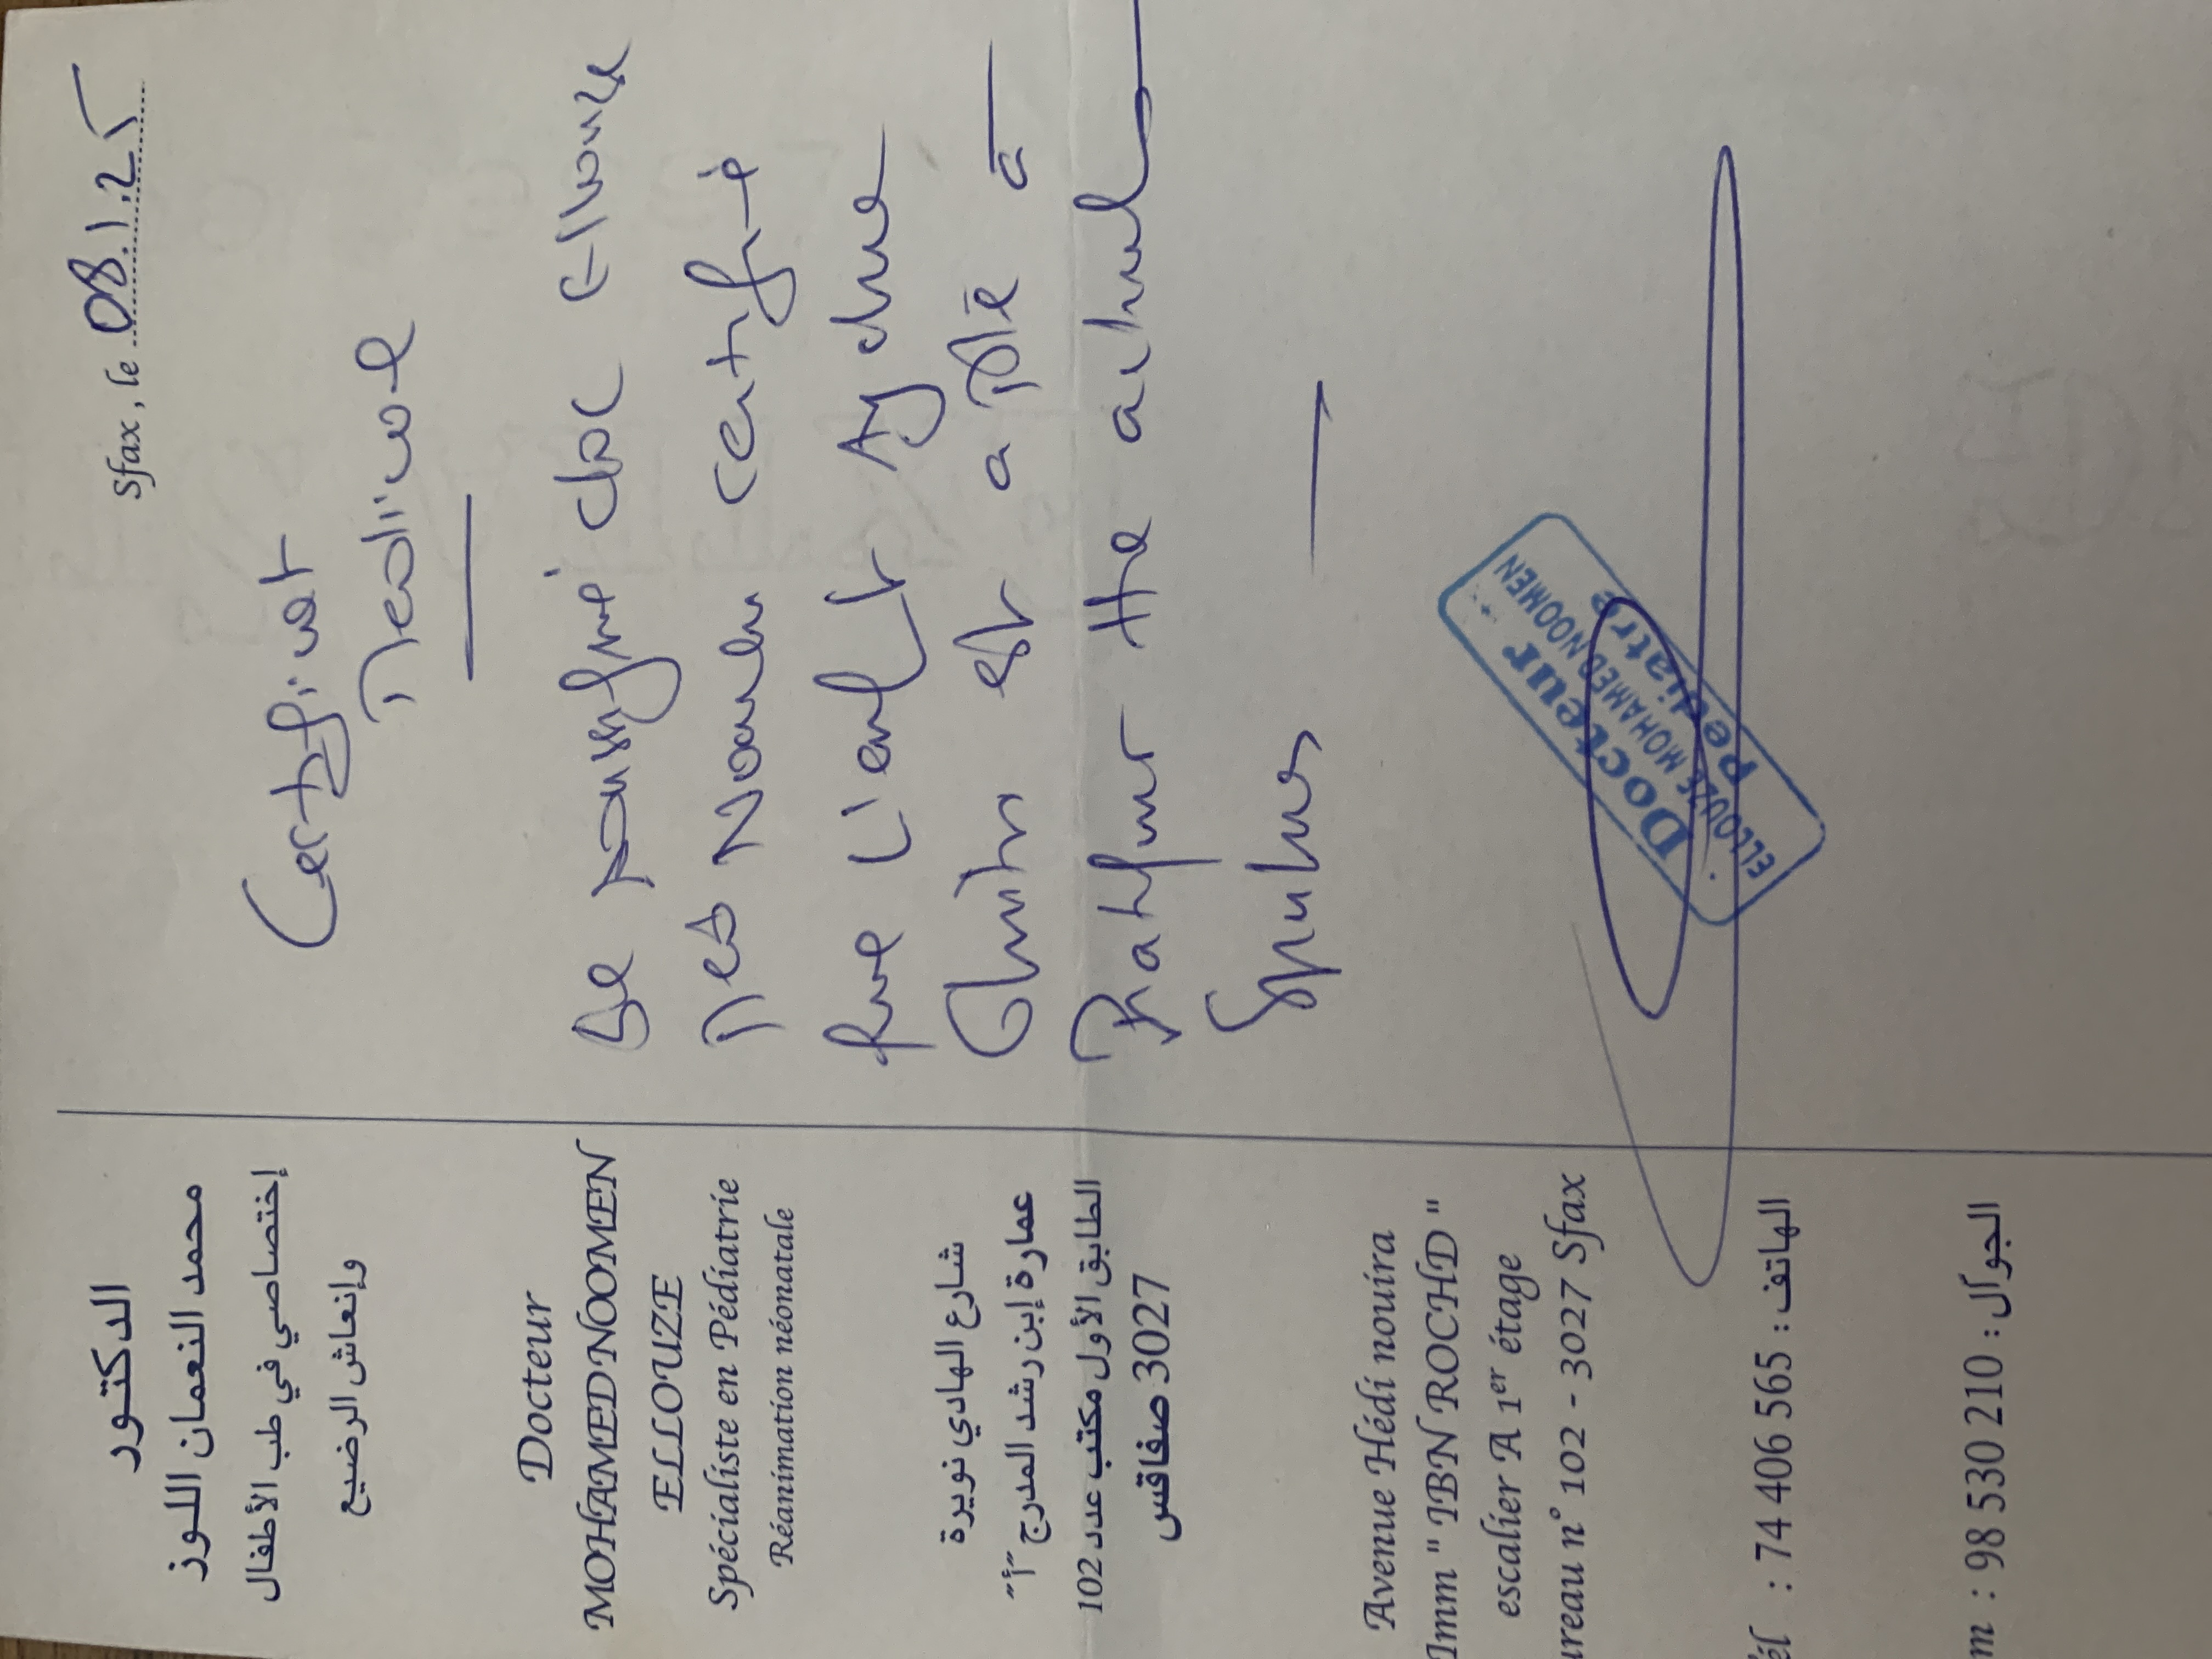 الدكتور
محمد النعمان اللوز
إختصاصي في طب الأطفال
وإنعاش الرضيع
Docteur
MOHAMED NOOMEN
ELLOUZE
Spécialiste en Pédiatrie
Réanimation néonatale
شارع الهادي نويرة
عمارة إبن رشد المدرج "أ"
الطابق الأول مكتب عدد 102
3027 صفاقس
Avenue Hédi nouira
Imm " IBN ROCHD "
escalier A 1er étage
ureau n° 102 - 3027 Sfax
él : 74 406 565 : الهاتف
m : 98 530 210 : الجوال
Sfax, le 08.1.25
Certificat
Medical
Je soussigné doc Ellouze
Med Noomen certifie
que l'enfant
est apte à
Pratiquer
Docteur
ELLOUZE MOHAMED NOOMEN
Pediatre